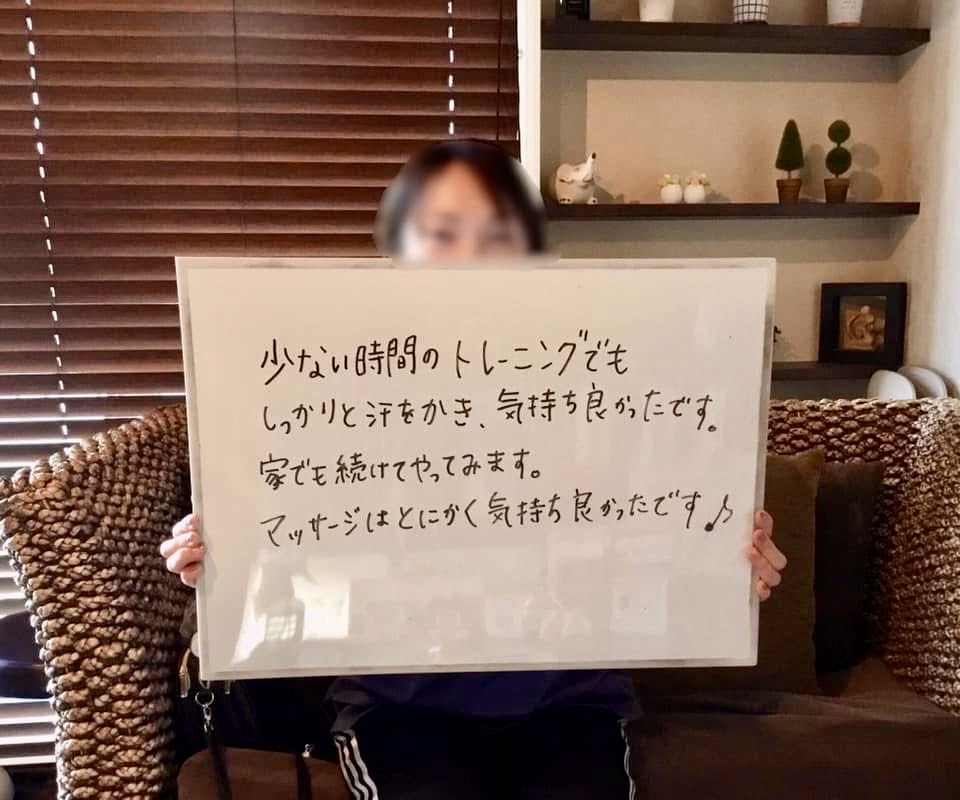 少ない時間のトレーニングでも
しっかりと汗をかき、気持ち良かったです。
家でも続けてやってみます。
マッサージはとにかく気持ち良かったです♪